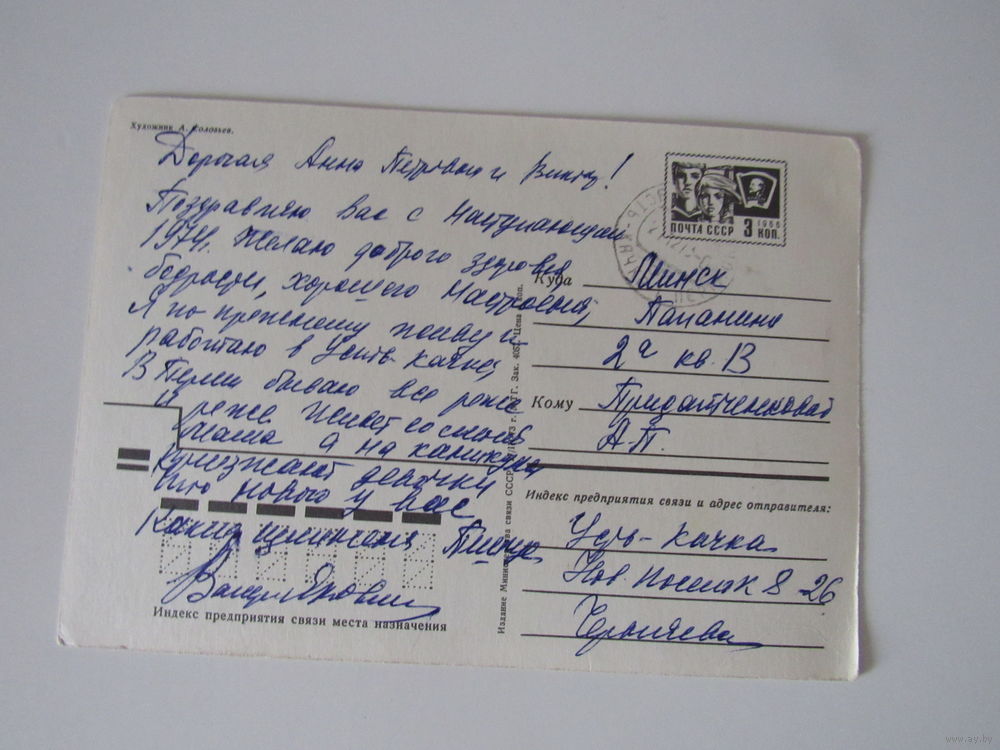 Художник А. Соловьев.
Дорогая Анна Петровна и Виктор!
Поздравляю Вас с Наступающим
1974г. Желаю доброго здоровья,
бодрости, хорошего Настроения,
Я по прежнему живу и
работаю в Усть-Качке,
В Перми бываю все реже
и реже живет со мной
Маша а на каникулы
приезжают девочки
Что нового у вас
Какие изменения Пишите
ПОЧТА СССР 3 КОП.
1966
Куда Минск
Папанина
2а кв. 13
Кому Придатченковой
А-П.
Индекс предприятия связи и адрес отправителя:
Усть-Качка
Нов. Поселок 8-26
Черняева
Индекс предприятия связи места назначения
Издание Министерства связи СССР
Зак. 405. Цена коп.
www.ay.by